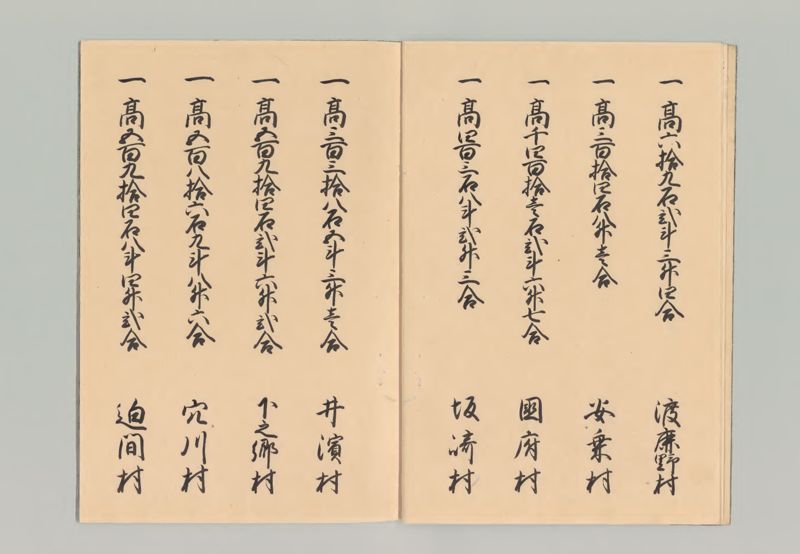 一 髙六拾九石弐斗三升四合 渡鹿野村
一 髙三百拾四石八升壱合 安乗村
一 髙千四百拾壱石弐斗六升七合 國府村
一 髙四百三石八斗弐升三合 坂﨑村
一 髙三百三拾八石五斗三升壱合 井濱村
一 髙五百九拾四石弐斗六升弐合 下之郷村
一 髙五百八拾六石九斗八升六合 穴川村
一 髙五百九拾四石八斗四升弐合 迫間村